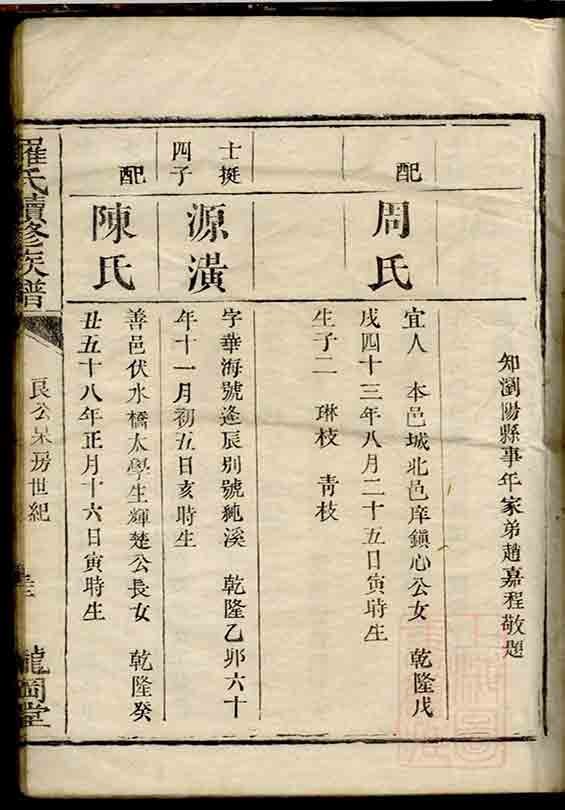 知瀏陽縣事年家弟趙嘉程敬題
配
周氏
宜人　本邑城北邑庠鎮心公女　乾隆戊
戌四十三年八月二十五日寅時生
生子二　琳枝　靑枝
士挺
四子
源潢
字華海號逢辰別號純溪　乾隆乙卯六十
年十一月初五日亥時生
配
陳氏
善邑伏水橋太學生輝楚公長女　乾隆癸
丑五十八年正月十六日寅時生
羅氏續修族譜
良公杲房世紀
龍岡堂